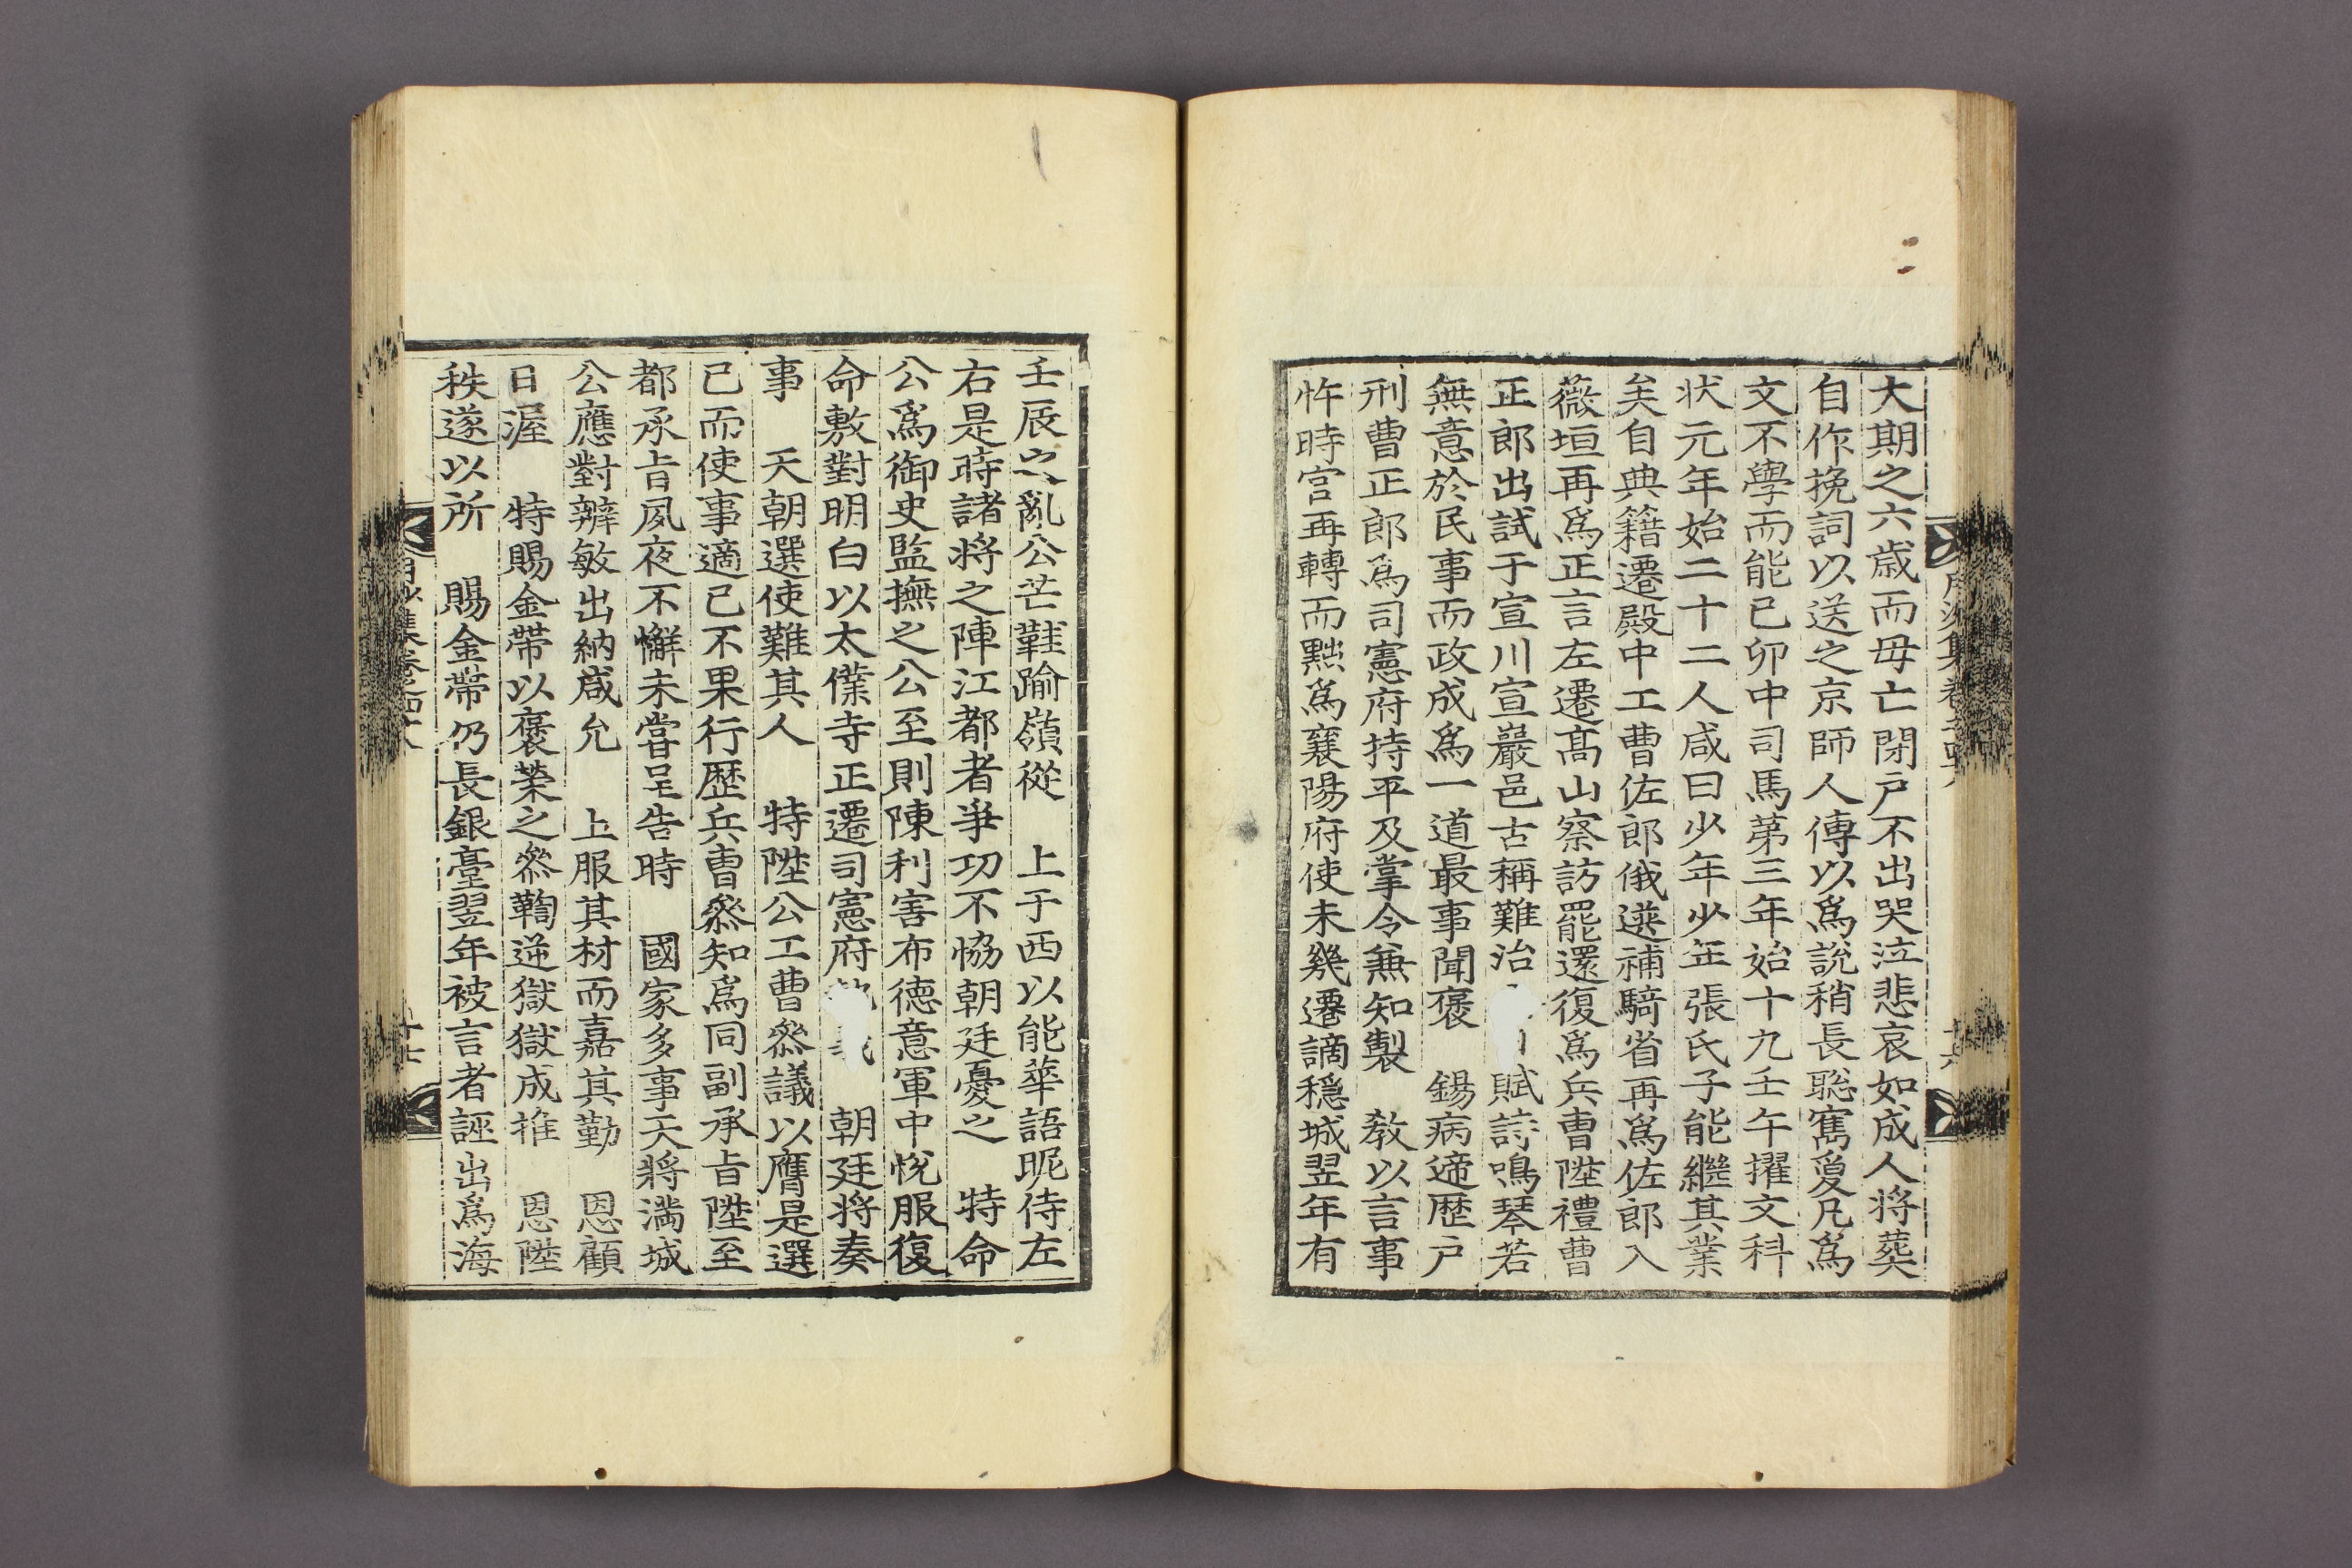 大期之六歲而母亡閉户不出哭泣悲哀如成人將葬
自作挽詞以送之京師人傳以爲說稍長聡寯爰凡爲
文不學而能己卯中司馬苐三年始十九壬午擢文科
状元年始二十二人咸曰少年少年張氏子能繼其業
矣自典籍遷殿中工曹佐郎俄選補騎省再爲佐郎入
薇垣再爲正言左遷高山察訪罷還復爲兵曹陞禮曹
正郎出試于宣川宣巖邑古稱難治 賦詩鳴琴若
無意於民事而政成爲一道最事聞褒 錫病遆歷戶
刑曹正郎爲司憲府持平及掌令兼知製 敎以言事
忤時宫再轉而黜爲襄陽府使未幾遷謫穩城翌年有
壬辰之亂公芒鞋踰嶺從 上于西以能華語昵侍左
右是時諸将之陣江都者爭功不恊朝廷憂之 特命
公爲御史監撫之公至則陳利害布德意軍中悅服復
命敷對明白以太僕寺正遷司憲府 朝廷将奏
事 天朝選使難其人 特陞公工曹叅議以膺是選
已而使事適已不果行歷兵曹叅知爲同副承旨陞至
都承旨夙夜不懈未嘗呈告時 國家多事天將滿城
公應對辨敏出納咸允 上服其材而嘉其勤 恩顧
日渥 特賜金帶以褒榮之叅鞫逆獄獄成推 恩陞
秩遂以所 賜金帶仍長銀臺翌年被言者誣出爲海